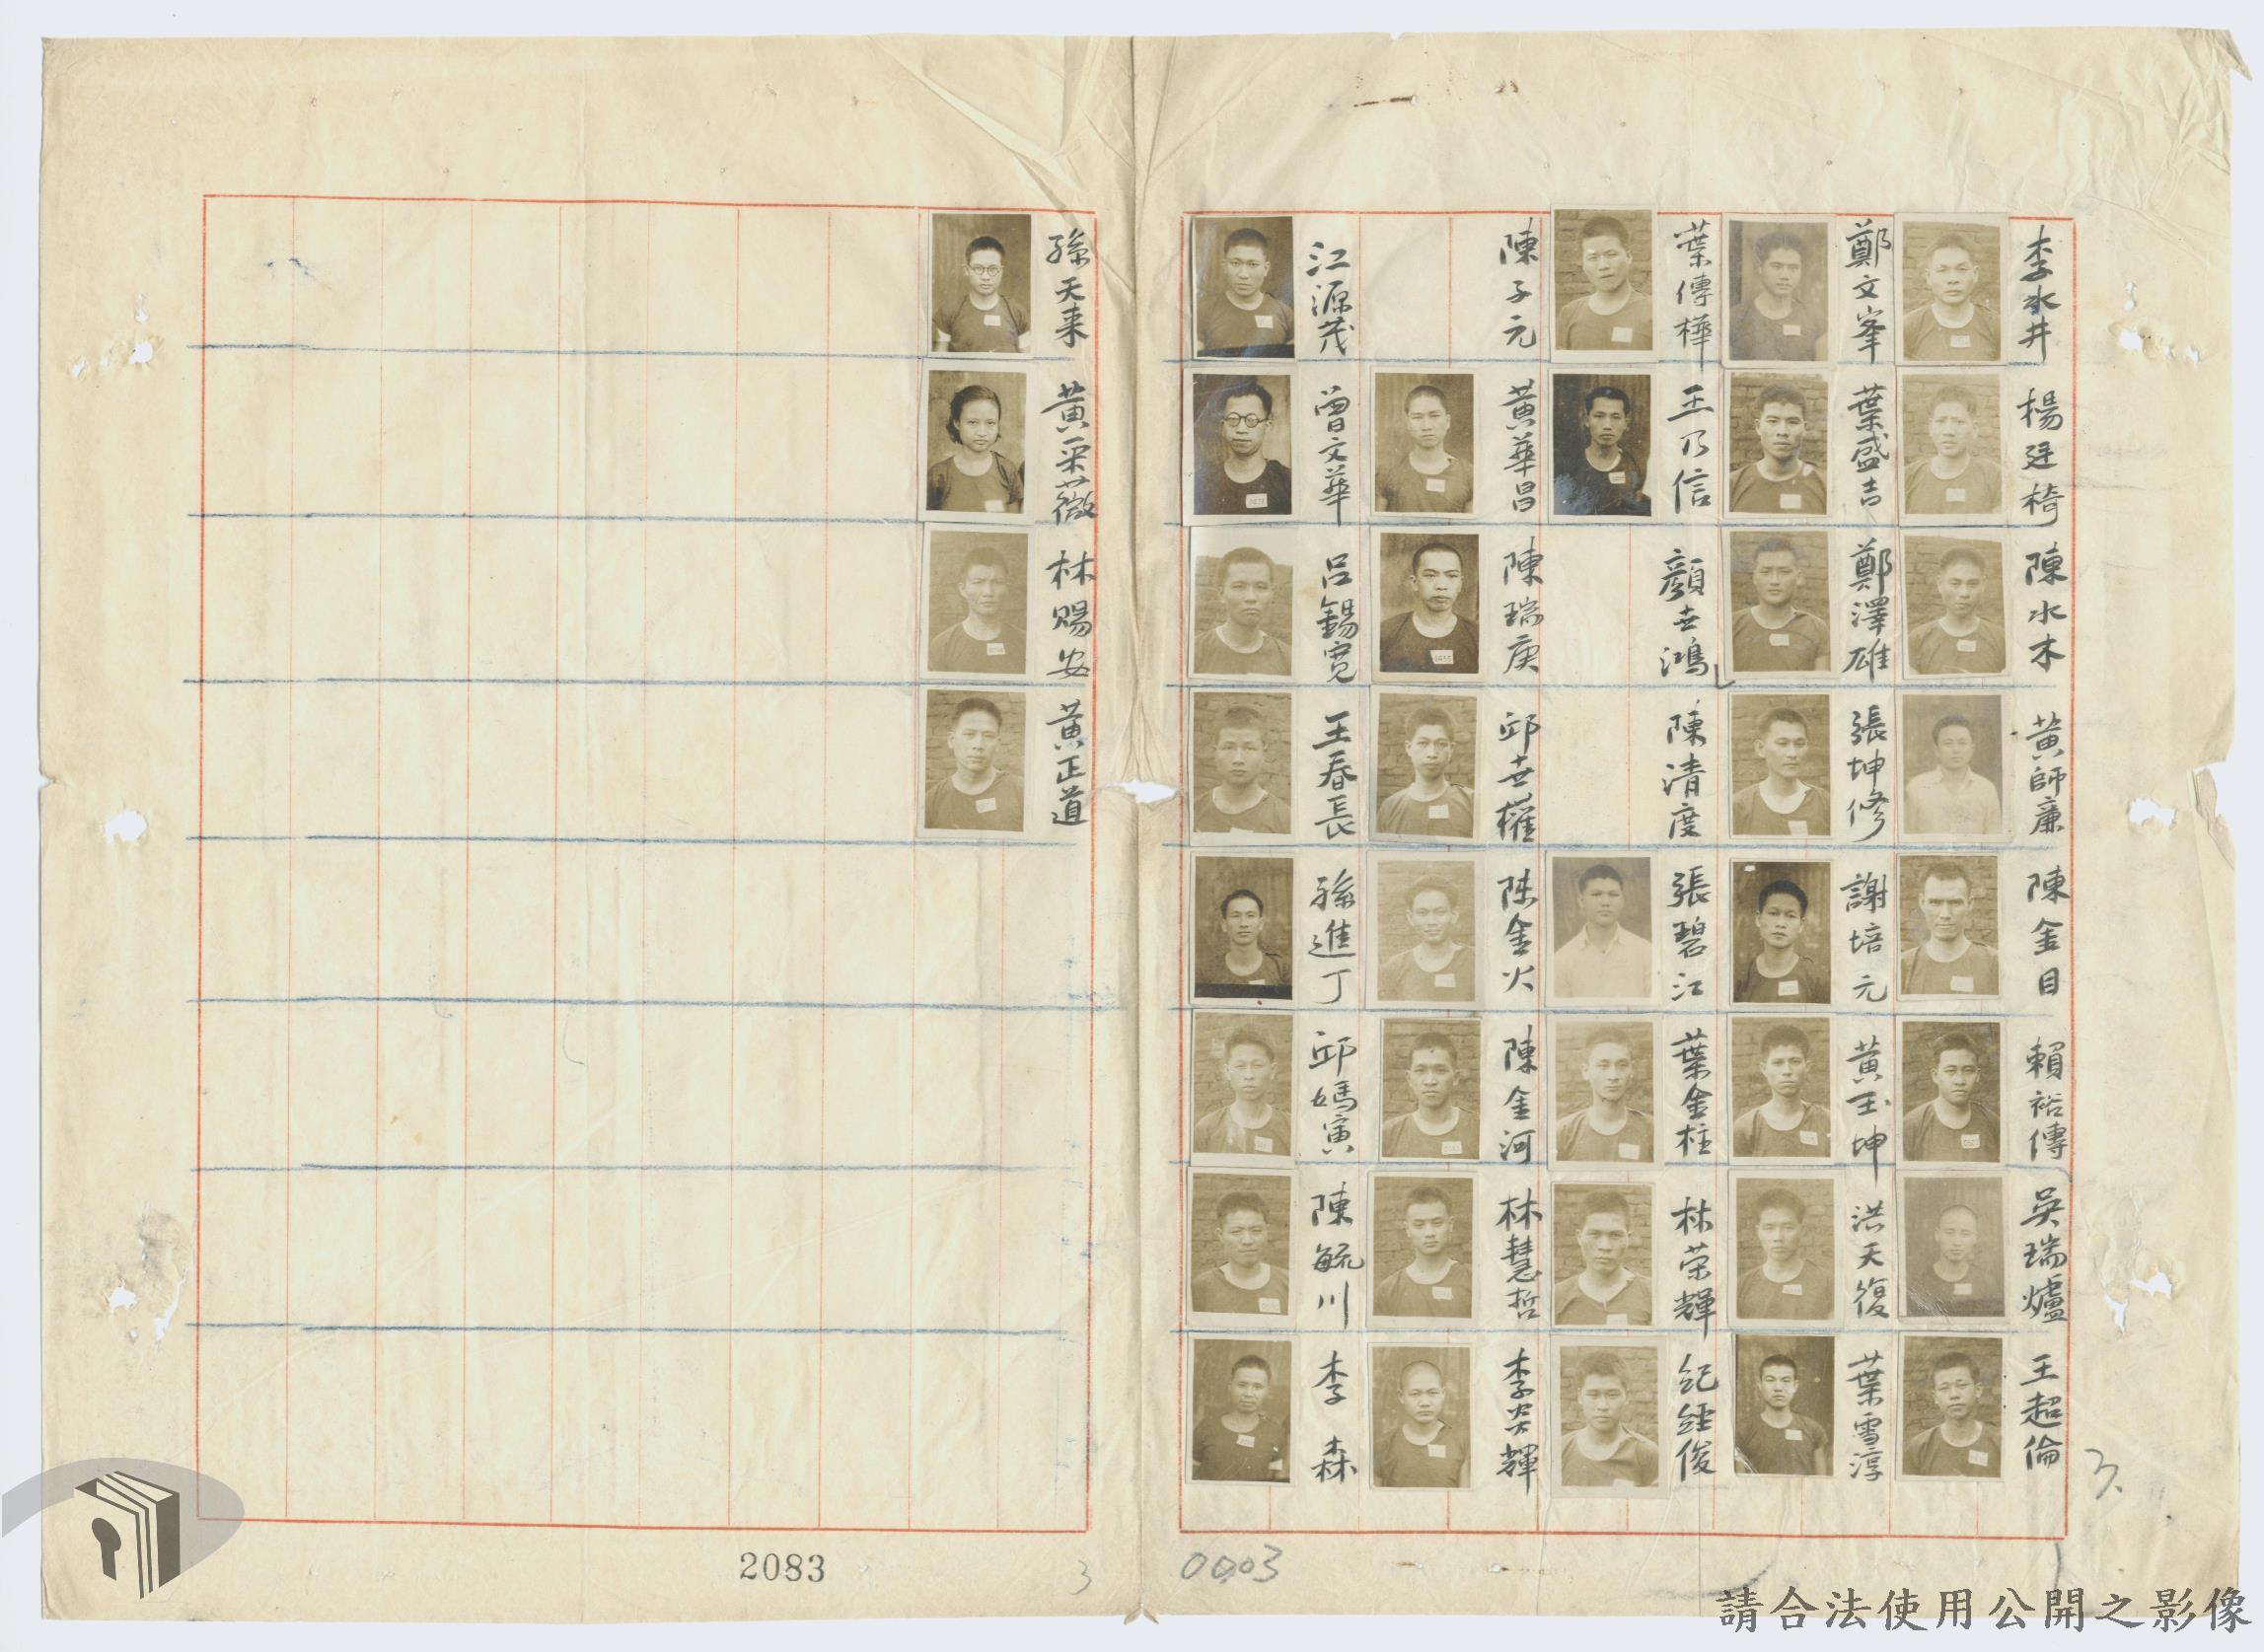 李水井
楊廷椅
陳水木
黃師廉
陳金目
賴裕傳
吳瑞爐
王超倫
鄭文峯
葉盛吉
鄭澤雄
張坤修
謝培元
黃玉坤
洪天復
葉雪淳
葉傳樺
王乃信
顏世鴻
陳清度
張碧江
葉金柱
林荣輝
紀經俊
陳子元
黃華昌
陳瑞庚
邱世權
陈金火
陳金河
林慧哲
李尖輝
江源茂
曾文華
呂錫寬
王春長
孫進丁
邱媽寅
陳毓川
李森
孫天来
黃采薇
林賜安
黃正道
3.
0003
3
2083
請合法使用公開之影像